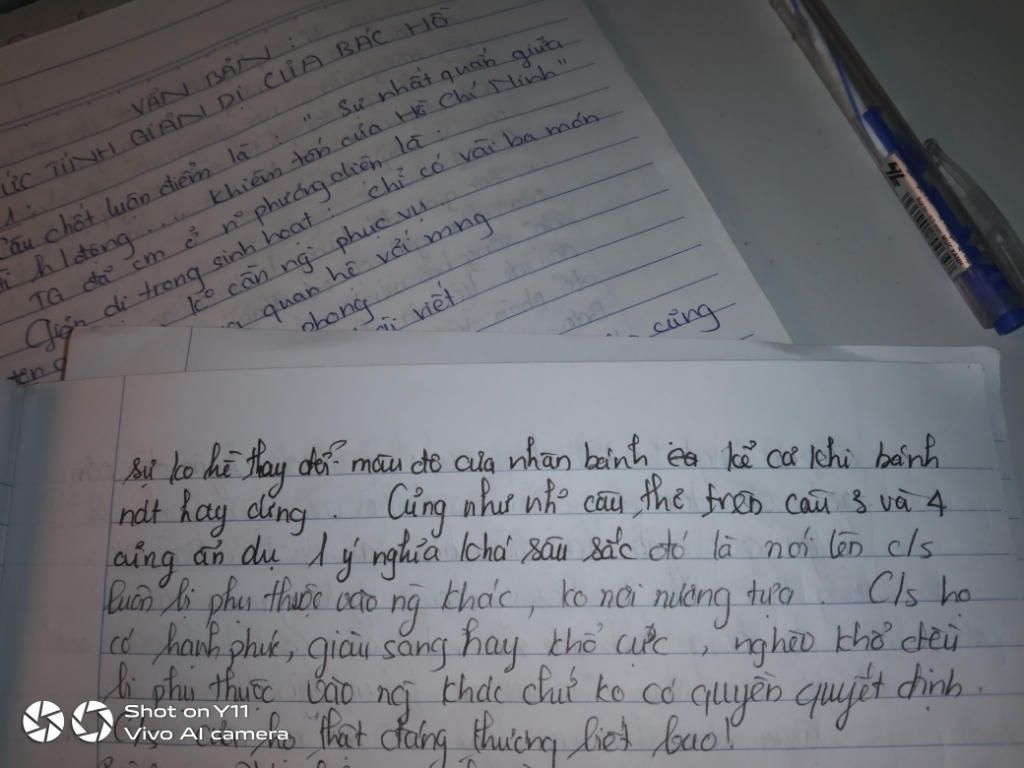 VĂN BẢN :
ĐỨC TÍNH GIẢN DỊ CỦA BÁC HỒ
1 :
Câu chốt luận điểm là : " Sự nhất quán giữa
h động ... khiêm tốn của Hồ Chí Minh"
TG đã cm ở n~ phương diện là :
Giản dị trong sinh hoạt : chỉ có vài ba món
ko cần ng` phục vụ
quan hệ với mng
phong
viết
cũng
sự ko hề thay đổi màu đỏ của nhân bánh kể cả khi bánh
nát hay cứng . Cũng như nh~ câu thơ trên câu 3 và 4
cũng ẩn dụ 1 ý nghĩa khá sâu sắc đó là nói lên c/s
luôn bị phụ thuộc vào ng` khác , ko nơi nương tựa . C/s họ
có hạnh phúc , giàu sang hay khổ cực , nghèo khổ đều
bị phụ thuộc vào ng` khác chứ ko có quyền quyết định .
C/s của họ thật đáng thương biết bao !
Shot on Y11
Vivo AI camera